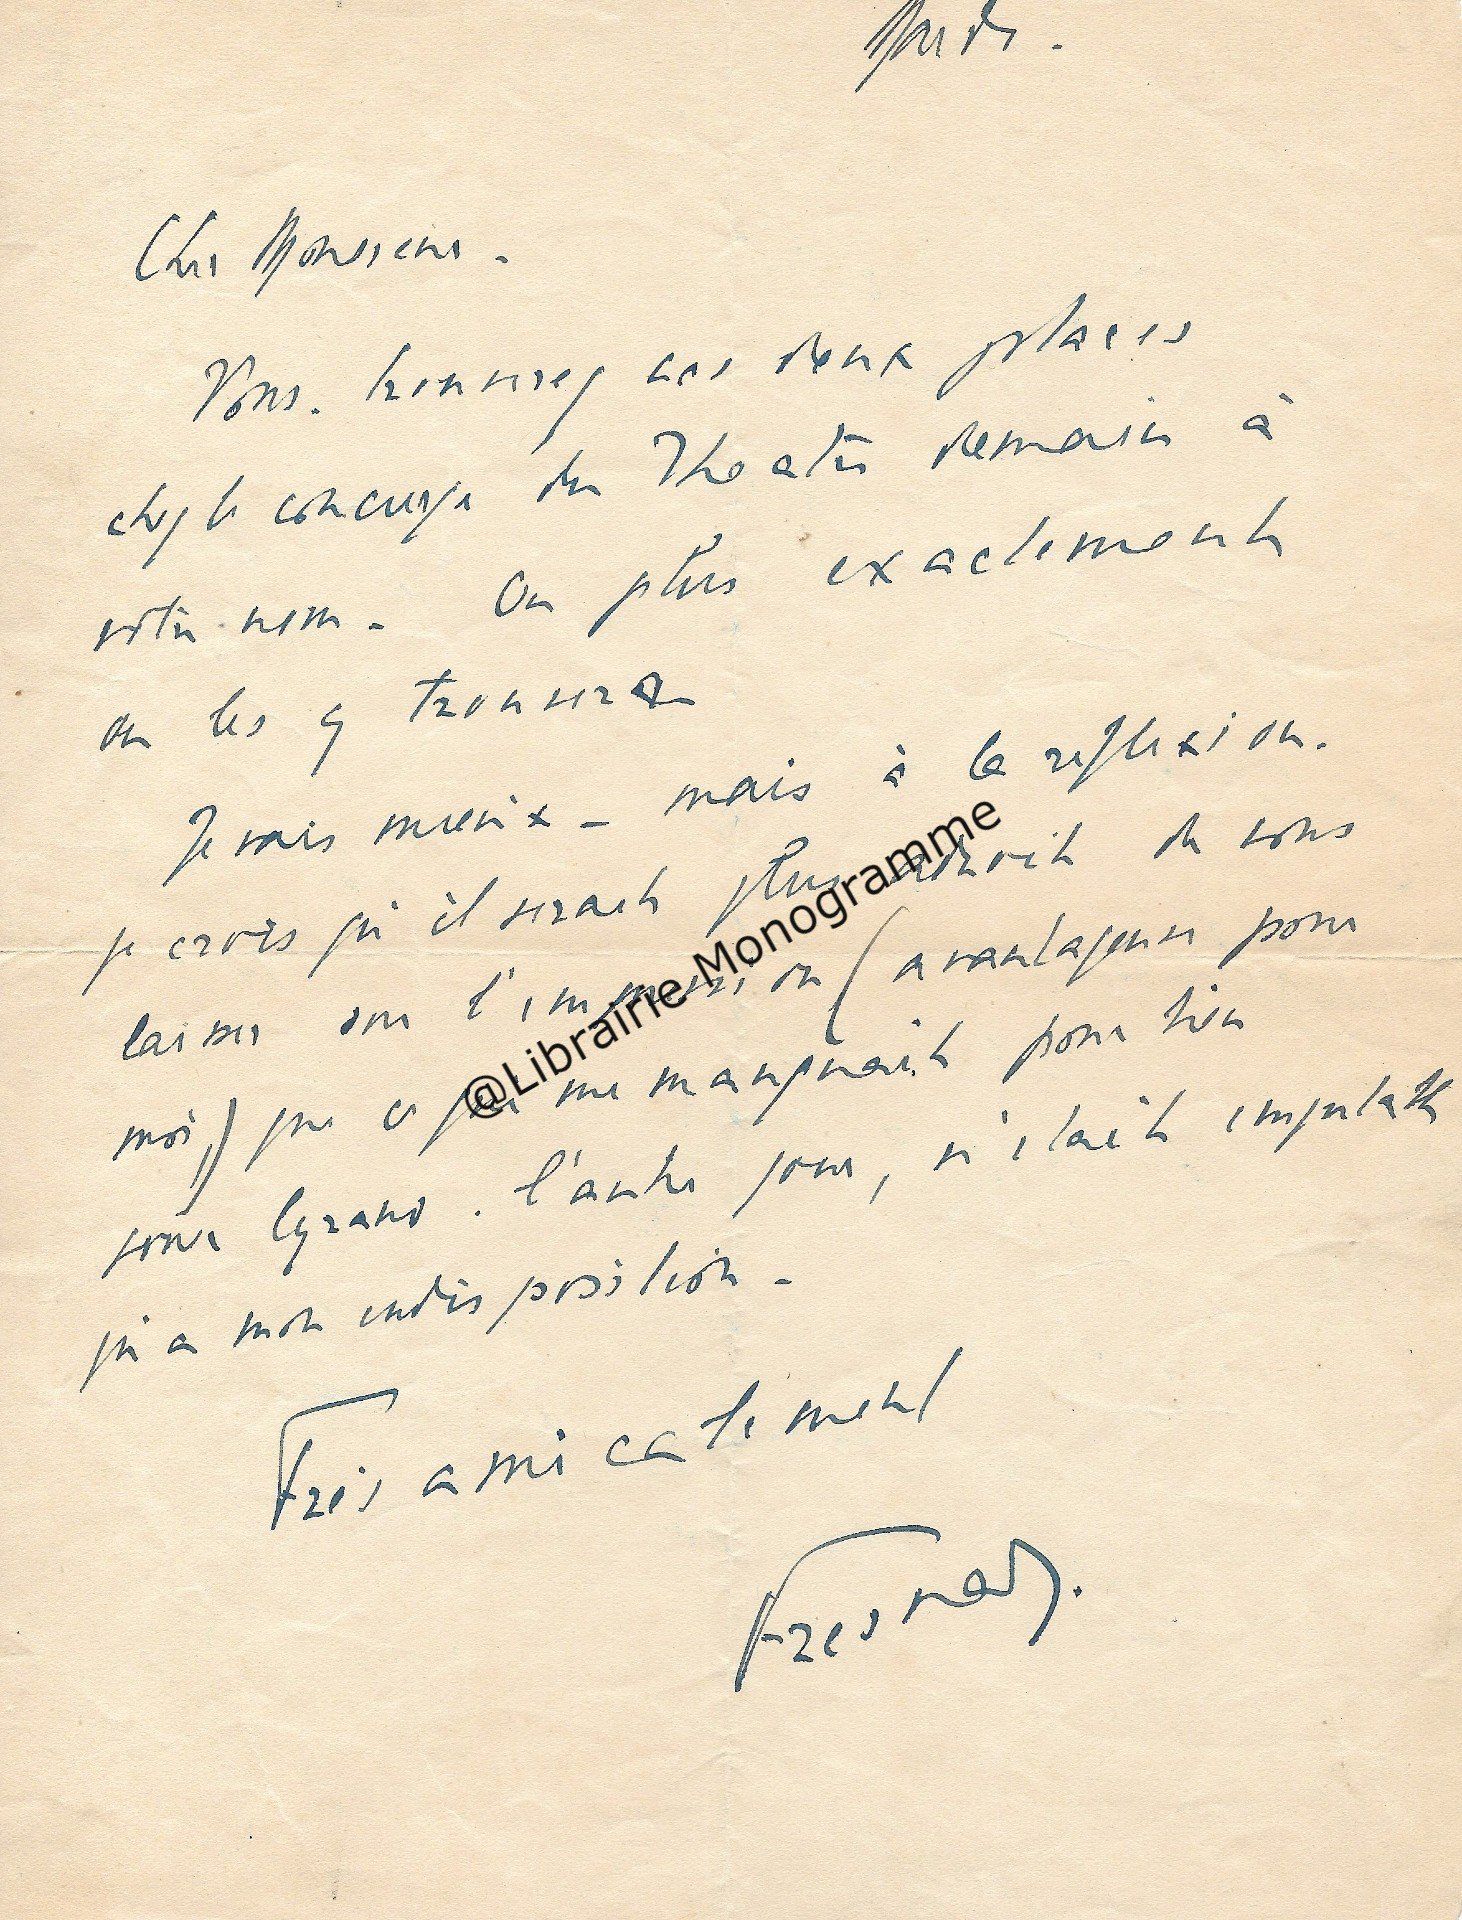 Mardi.
Cher Monsieur.
Vous trouverez ces deux places
chez le concierge du Theatre demain à
votre nom. Ou plus exactement
on les y trouvera
Je vais mieux - mais à la reflexion.
je crois qu'il serait plus adroit de vous
laisser sur l'impression (avantageuse pour
moi) que ce qui me manquait pour bien
jouer Cyrano. l'autre jour, n'était imputable
qu'a mon indisposition -
Très amicalement
Fresnay.
@Librairie Monogramme